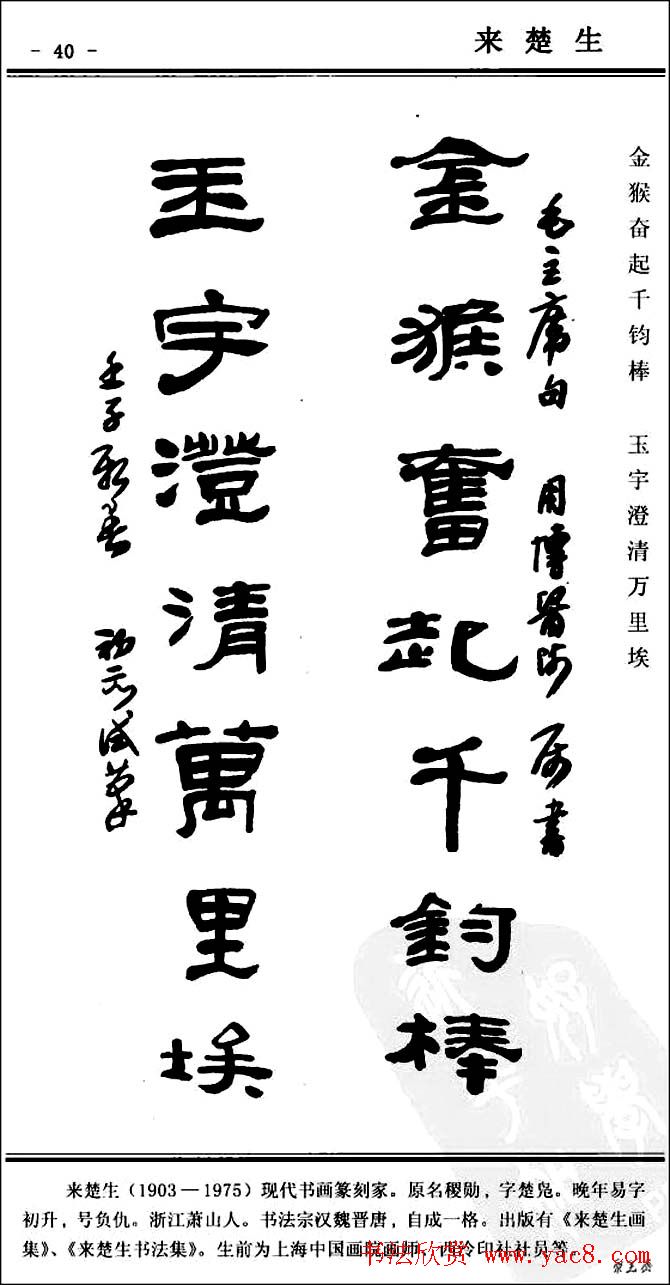 - 40 -
来楚生
金猴奋起千钧棒　玉宇澄清万里埃
毛主席句
金猴奮起千鈞棒
玉宇澄清萬里埃
壬子
来楚生（1903—1975）现代书画篆刻家。原名稷勋，字楚凫。晚年易字
初升，号负仇。浙江萧山人。书法宗汉魏晋唐，自成一格。出版有《来楚生画
集》、《来楚生书法集》。生前为上海中国画院画师、西泠印社社员等
书法欣赏
www.yac8.com